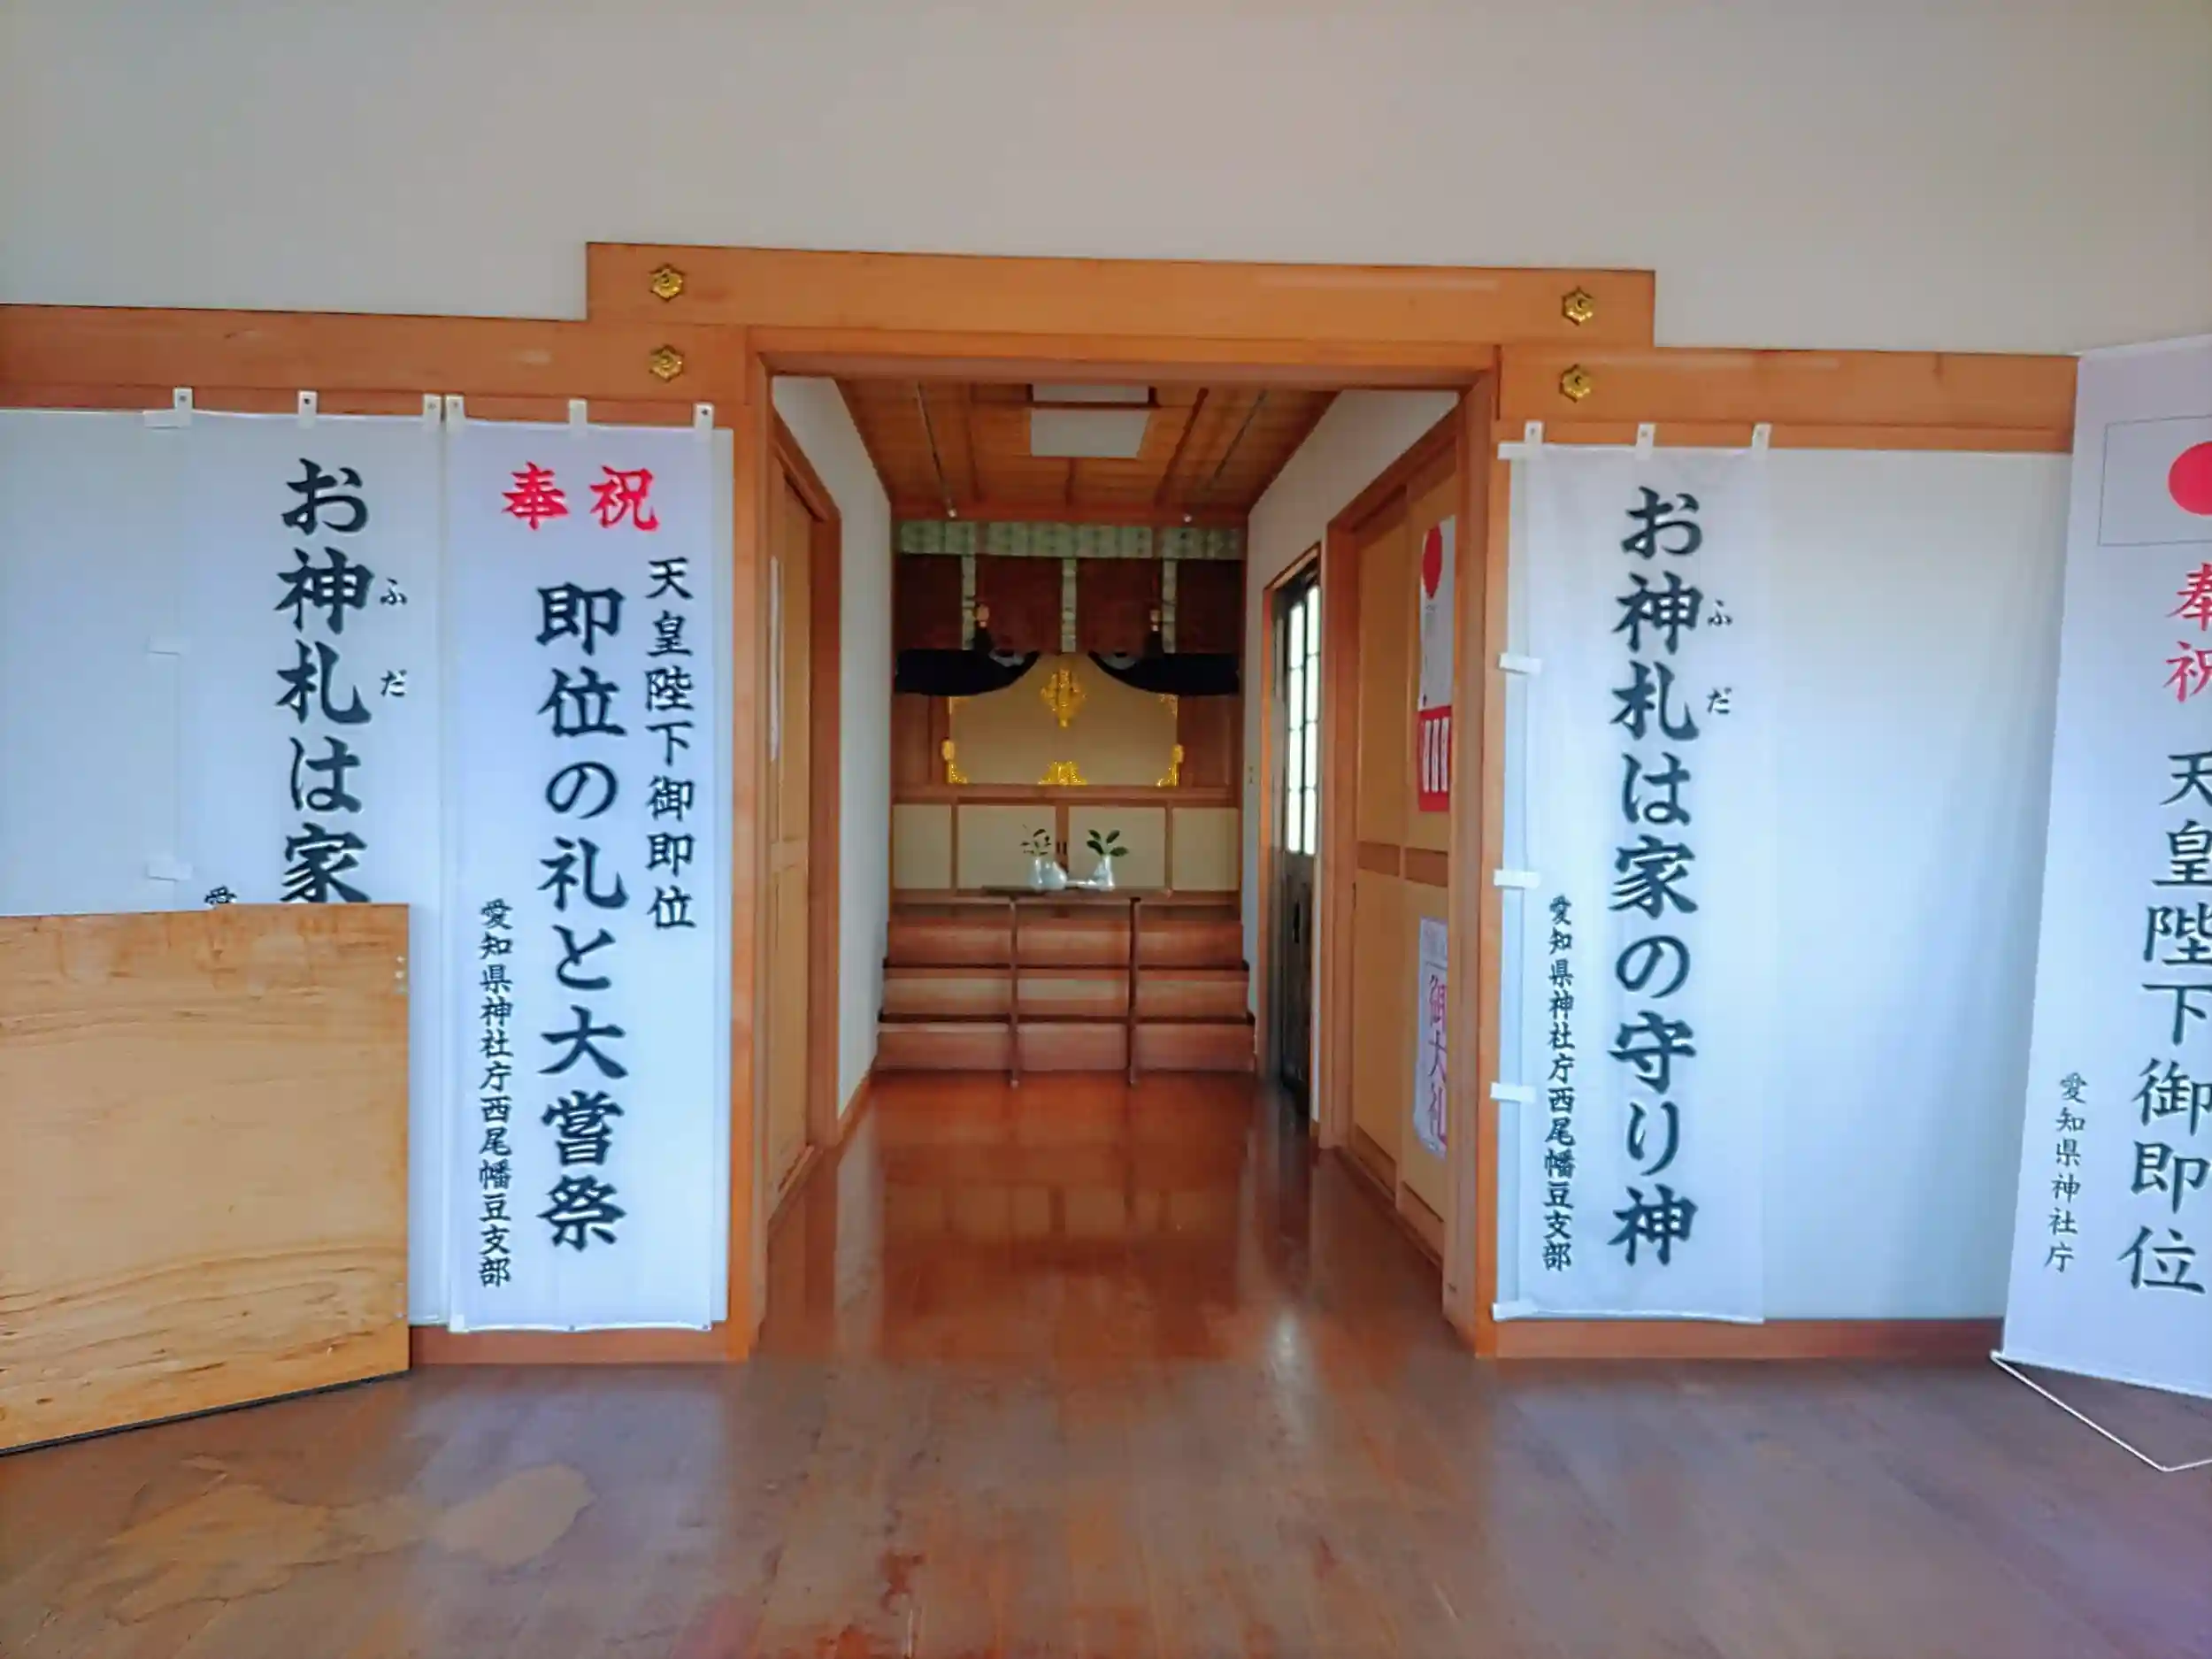 お神札は家
ふだ
愛
奉祝
天皇陛下御即位
即位の礼と大嘗祭
愛知県神社庁西尾幡豆支部
御大礼
お神札は家の守り神
ふだ
愛知県神社庁西尾幡豆支部
奉祝
天皇陛下御即位
愛知県神社庁